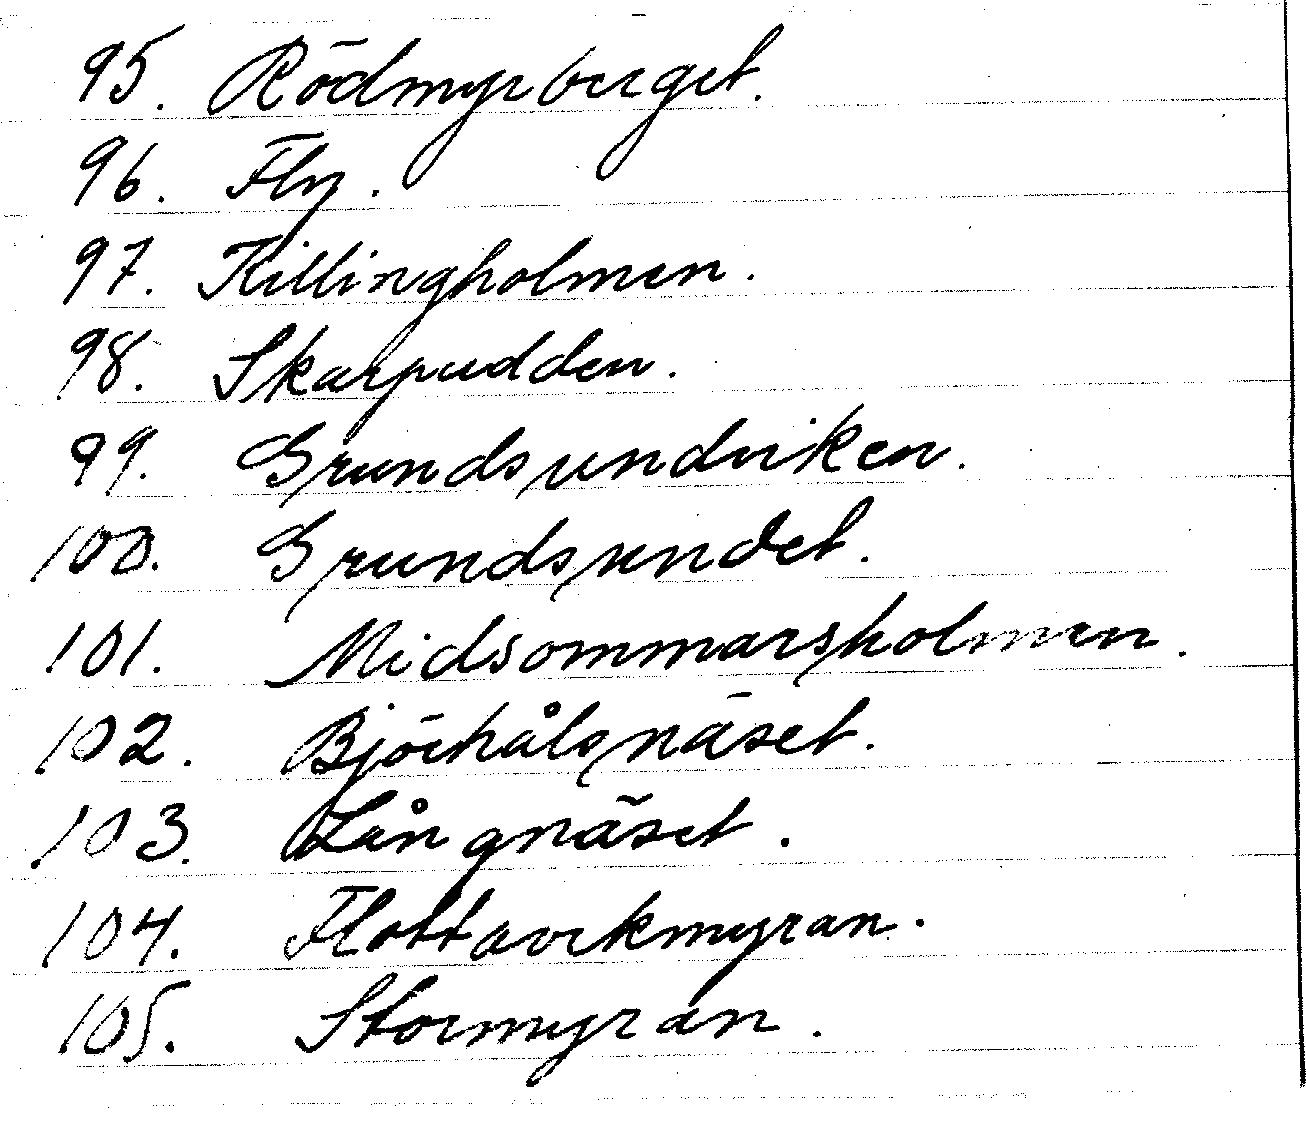 95. Rödmyrberget.
96. Fly.
97. Killingholmen.
98. Skarpudden.
99. Grundsundviken.
100. Grundsundet.
101. Midsommarsholmen.
102. Björhålsnäset.
103. Långnäset.
104. Flottavikmyran.
105. Stormyran.